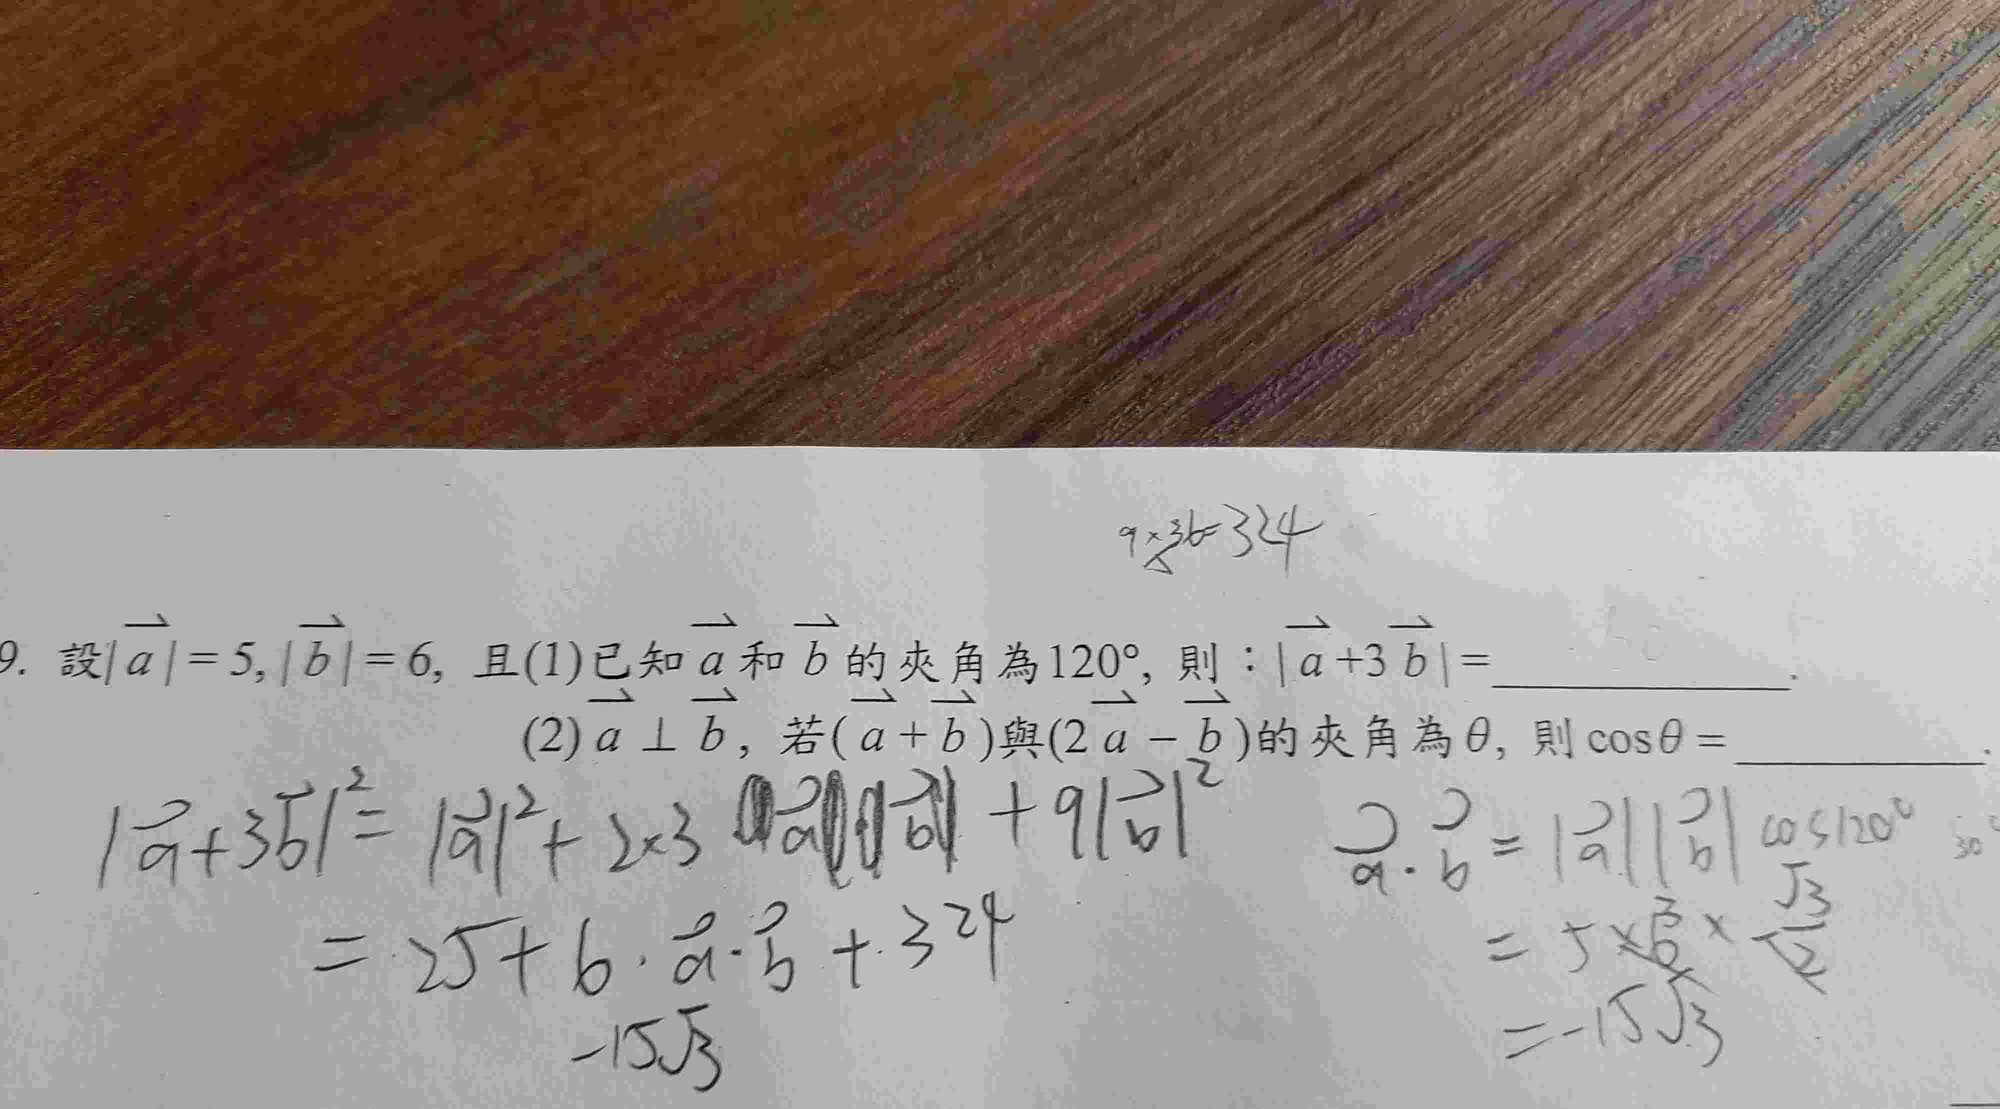 9×36=324
9. 設|a⃗|=5, |b⃗|=6, 且(1)已知 a⃗ 和 b⃗ 的夾角為120°, 則：|a⃗+3b⃗|=__________.
(2) a⃗ ⊥ b⃗, 若(a⃗+b⃗)與(2a⃗−b⃗)的夾角為θ, 則 cosθ=__________.
|a⃗+3b⃗|²=|a⃗|²+2×3 a⃗ b⃗ +9|b⃗|²
=25+6·a⃗·b⃗+324
-15√3
a⃗·b⃗=|a⃗||b⃗| cos120° 30°
=5×6×
=-15√3